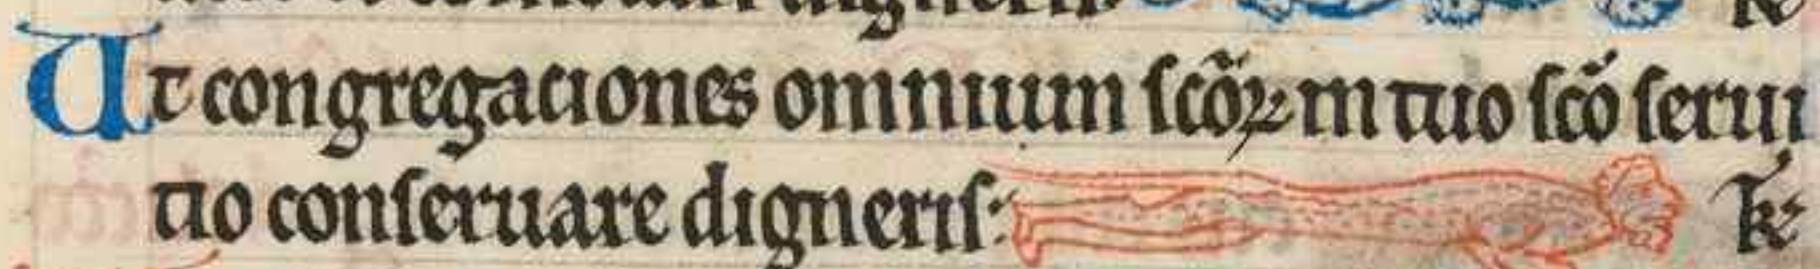 digneris
Ut congregaciones omnium scõꝝ in tuo scõ serui
tio conseruare digneris: k